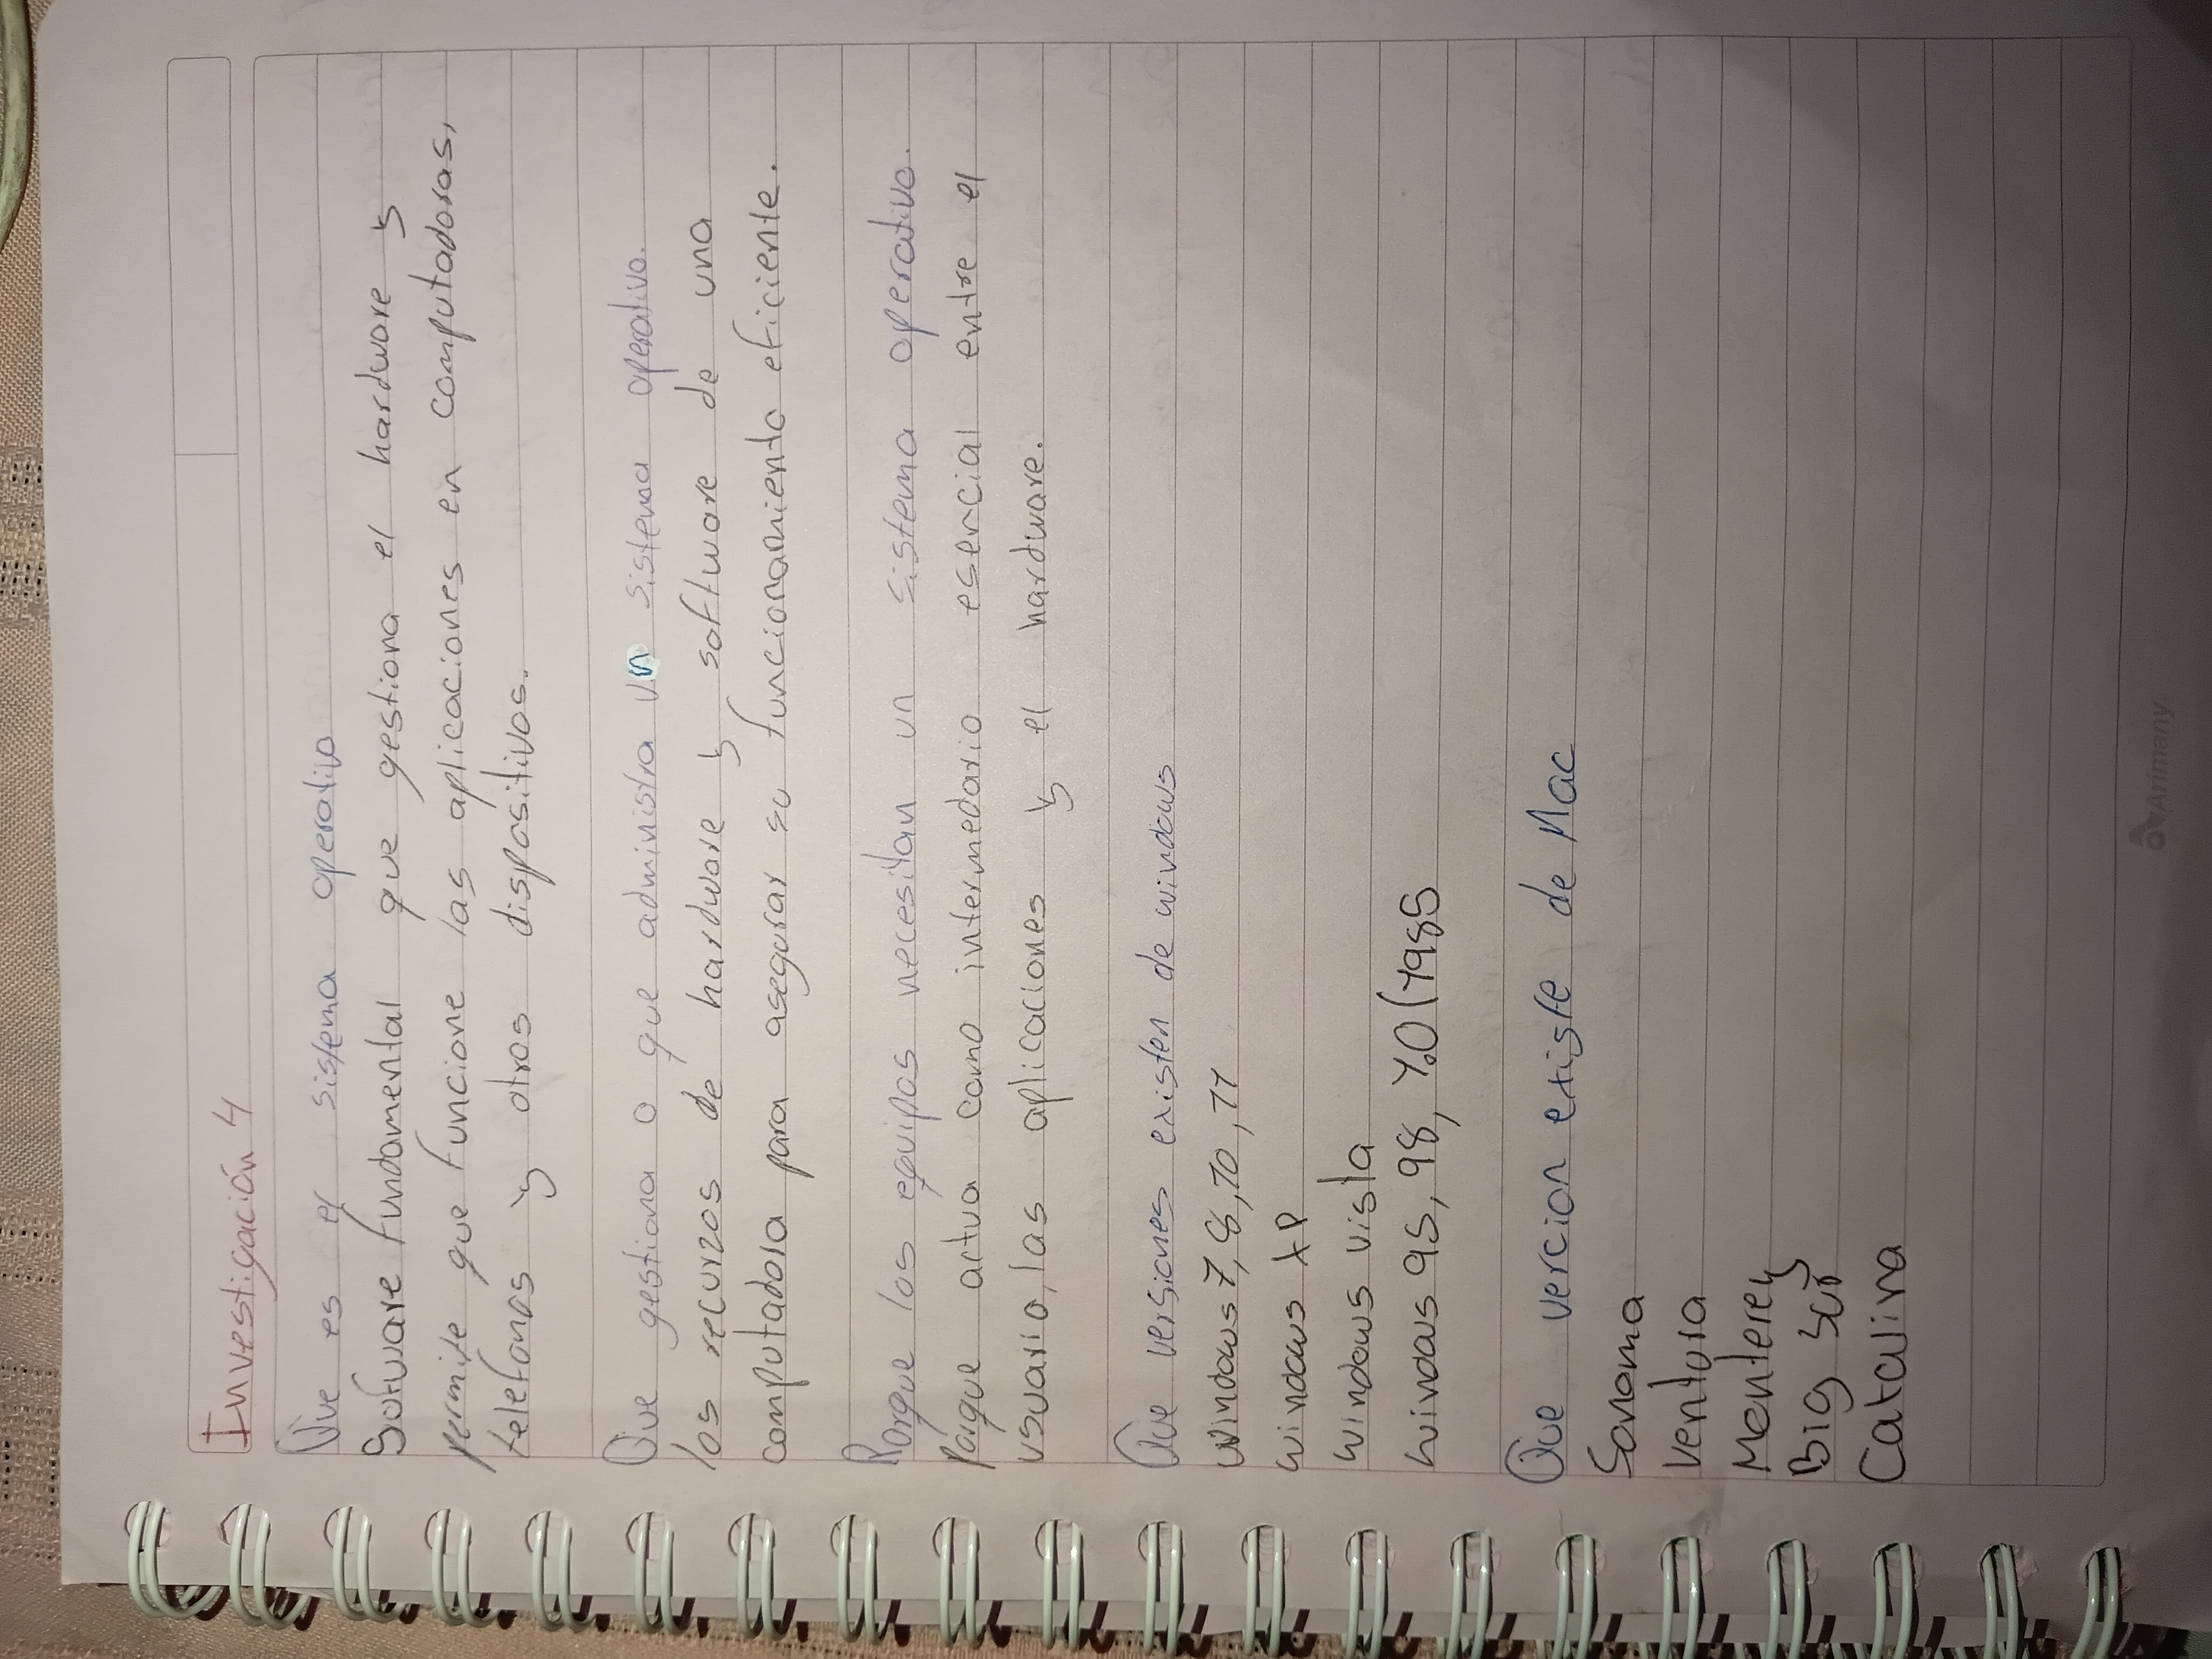 Investigación 4
Que es el sistema operativo
Software fundamental que gestiona el hardware y
permite que funcione las aplicaciones en computadoras,
telefonos y otros dispositivos.
Que gestiona o que administra un sistema operativo.
los recurzos de hardware y software de una
computadora para asegurar su funcionamiento eficiente.
Porque los equipos necesitan un sistema operativo.
Porque actua como intermedario esencial entre el
usuario, las aplicaciones y el hardware.
Que versiones existen de windows
Windows 7, 8, 10, 11
windows XP
windows vista
windows 95, 98, 1.0 (1985
Que vercion existe de Mac
Sonoma
Ventura
Monterey
Big Sur
Catalina
Arimany